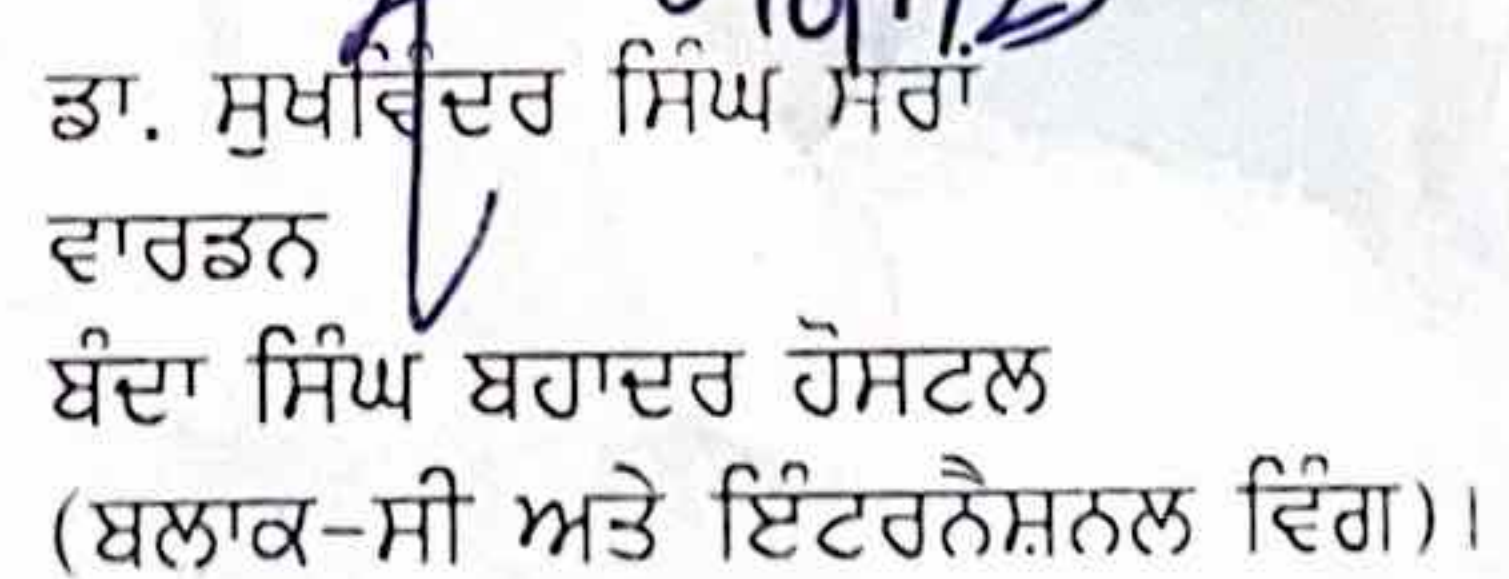 ਡਾ. ਸੁਖਵਿੰਦਰ ਸਿੰਘ ਸਰਾਂ
ਵਾਰਡਨ
ਬੰਦਾ ਸਿੰਘ ਬਹਾਦਰ ਹੋਸਟਲ
(ਬਲਾਕ-ਸੀ ਅਤੇ ਇੰਟਰਨੈਸ਼ਨਲ ਵਿੰਗ)।